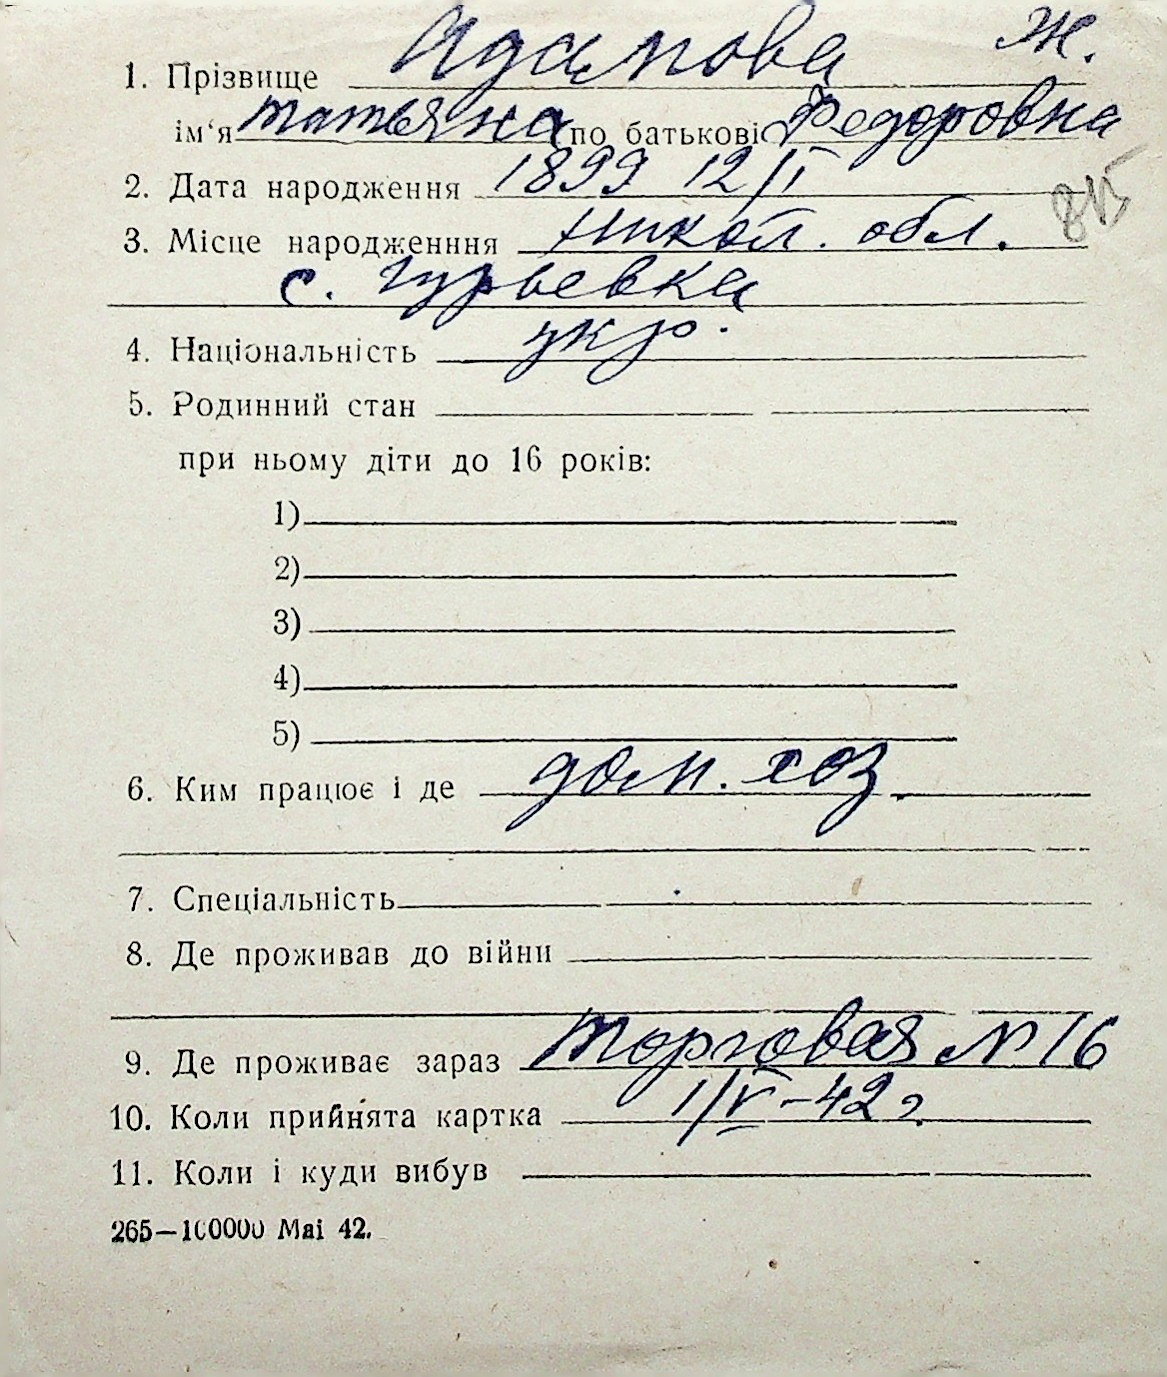 1. Прізвище Адамова Ж.
ім‘я Татьяна по батькові Федоровна
2. Дата народження 1899 12/I
3. Місце народженння Никол. обл.
с. Гурьевка
4. Національність укр.
5. Родинний стан
при ньому діти до 16 років:
1)
2)
3)
4)
5)
6. Ким працює і де дом. хоз.
7. Спеціальність
8. Де проживав до війни
9. Де проживає зараз Торговая № 16
10. Коли прийнята картка 1/V-42 г.
11. Коли і куди вибув
265—100000 Mai 42.